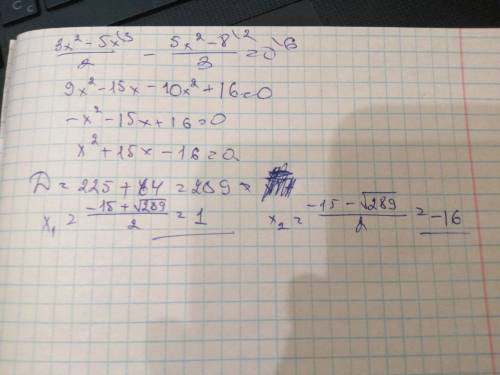 (3x² - 5x\3)/2 - (5x² - 8\2)/3 = 0\6
9x² - 15x - 10x² + 16 = 0
-x² - 15x + 16 = 0
x² + 15x - 16 = 0
D = 225 + 64 = 289 =
x₁ = (-15 + √289)/2 = 1 x₂ = (-15 - √289)/2 = -16